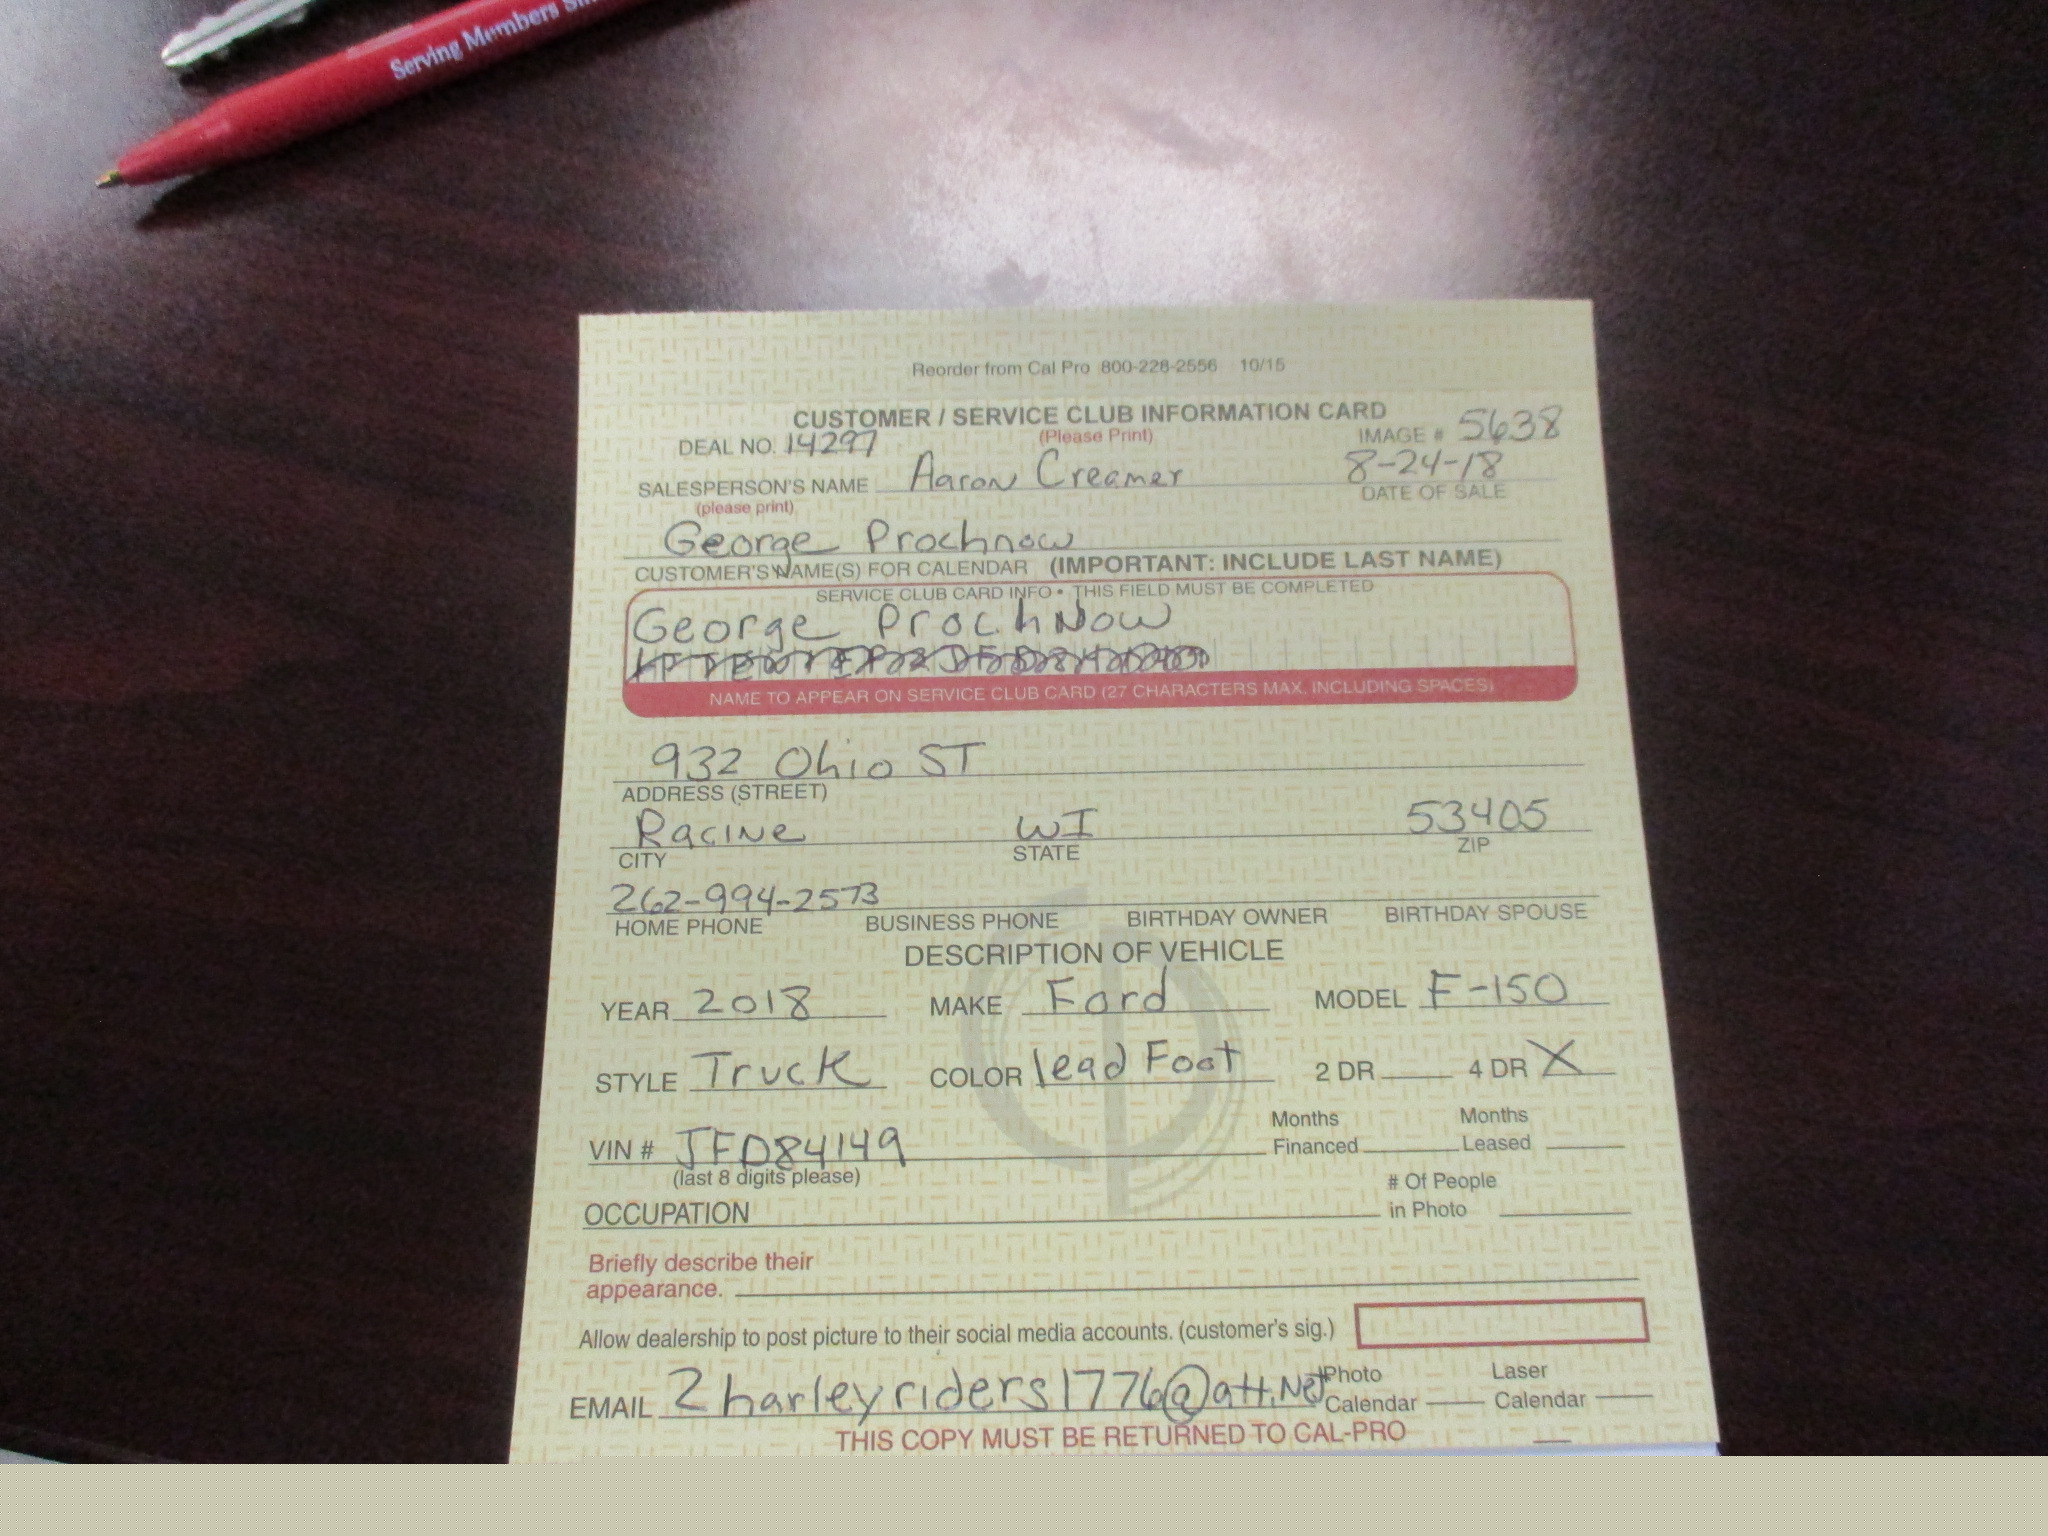 Serving Members Sin
Reorder from Cal Pro 800-228-2556 10/15
CUSTOMER / SERVICE CLUB INFORMATION CARD
DEAL NO. 14297 (Please Print) IMAGE # 5638
SALESPERSON'S NAME Aaron Creamer 8-24-18
(please print) DATE OF SALE
George Prochnow
CUSTOMER'S NAME(S) FOR CALENDAR (IMPORTANT: INCLUDE LAST NAME)
SERVICE CLUB CARD INFO • THIS FIELD MUST BE COMPLETED
George ProchNow
NAME TO APPEAR ON SERVICE CLUB CARD (27 CHARACTERS MAX. INCLUDING SPACES)
932 Ohio ST
ADDRESS (STREET)
Racine WI 53405
CITY STATE ZIP
262-994-2573
HOME PHONE BUSINESS PHONE BIRTHDAY OWNER BIRTHDAY SPOUSE
DESCRIPTION OF VEHICLE
YEAR 2018 MAKE Ford MODEL F-150
STYLE Truck COLOR lead Foot 2 DR 4 DR X
Months Months
VIN # JFD84149 Financed Leased
(last 8 digits please) # Of People
OCCUPATION in Photo
Briefly describe their
appearance.
Allow dealership to post picture to their social media accounts. (customer's sig.)
Photo Laser
EMAIL 2harleyriders1776@att.Net Calendar Calendar
THIS COPY MUST BE RETURNED TO CAL-PRO